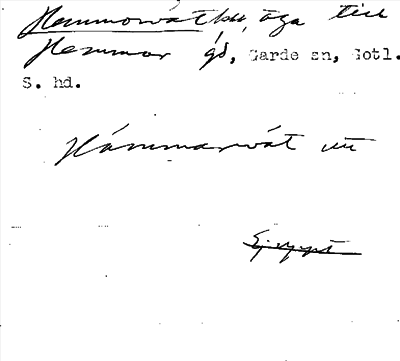 Hemmorvät, äga till
Hemmor gd, Garde sn, Gotl.
S. hd.
Hämmarvät
Ej uppt